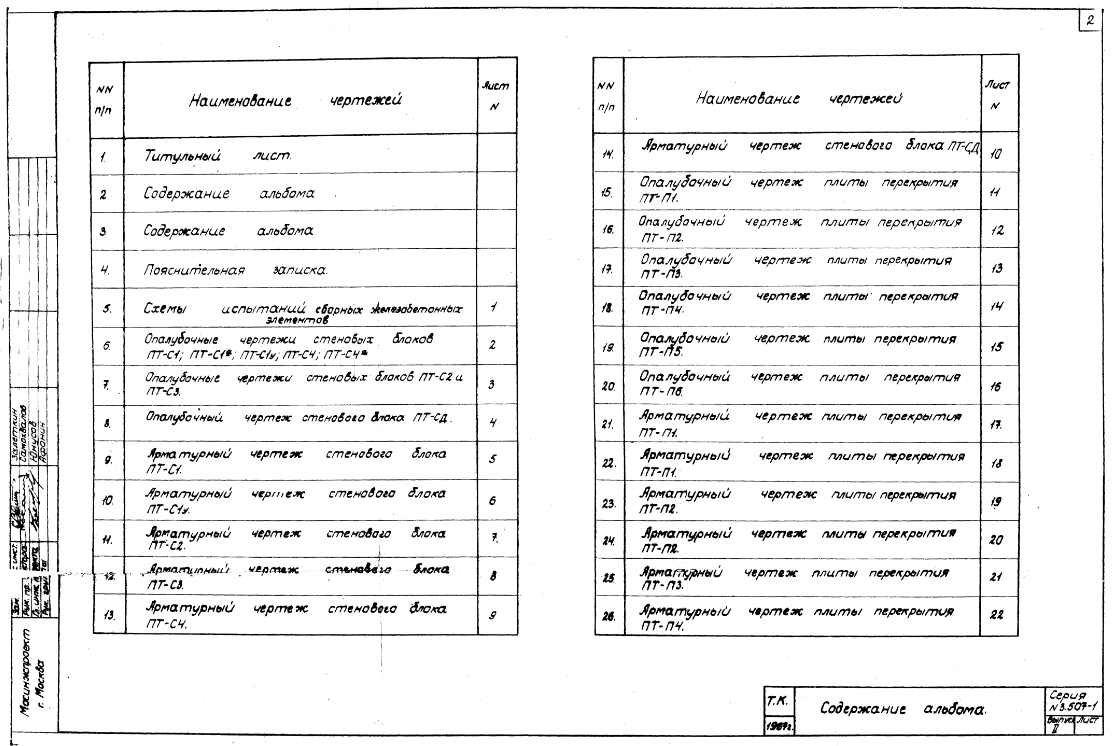 2
NN п/п
Наименование чертежей
Лист N
1. Титульный лист.
2 Содержание альбома
3 Содержание альбома
4. Пояснительная записка.
5. Схемы испытаний сборных железобетонных 1
элементов
6. Опалубочные чертежи стеновых блоков 2
ПТ-С1; ПТ-С1*; ПТ-С1у; ПТ-С4; ПТ-С4*
7. Опалубочные чертежи стеновых блоков ПТ-С2 и 3
ПТ-С3.
8. Опалубочный чертеж стенового блока ПТ-СД. 4
9. Арматурный чертеж стенового блока 5
ПТ-С1.
10. Арматурный чертеж стенового блока 6
ПТ-С1у.
11. Арматурный чертеж стенового блока 7.
ПТ-С2.
12. Арматурный чертеж стенового блока 8
ПТ-С3.
13. Арматурный чертеж стенового блока 9
ПТ-С4.
NN п/п
Наименование чертежей
Лист N
14. Арматурный чертеж стенового блока ПТ-СД 10
15. Опалубочный чертеж плиты перекрытия 11
ПТ-П1.
16. Опалубочный чертеж плиты перекрытия 12
ПТ-П2.
17. Опалубочный чертеж плиты перекрытия 13
ПТ-П3.
18. Опалубочный чертеж плиты перекрытия 14
ПТ-П4.
19. Опалубочный чертеж плиты перекрытия 15
ПТ-П5.
20. Опалубочный чертеж плиты перекрытия 16
ПТ-П6.
21. Арматурный чертеж плиты перекрытия 17.
ПТ-П1.
22. Арматурный чертеж плиты перекрытия 18
ПТ-П1.
23. Арматурный чертеж плиты перекрытия 19
ПТ-П2.
24. Арматурный чертеж плиты перекрытия 20
ПТ-П2.
25 Арматурный чертеж плиты перекрытия 21
ПТ-П3.
26. Арматурный чертеж плиты перекрытия 22
ПТ-П4.
Залеткин
Самохвалов
Юнусов
Афонин
Мосинжпроект
г. Москва
Т.К.
1967г.
Содержание альбома.
Серия
N3.507-1
Выпуск Лист
II